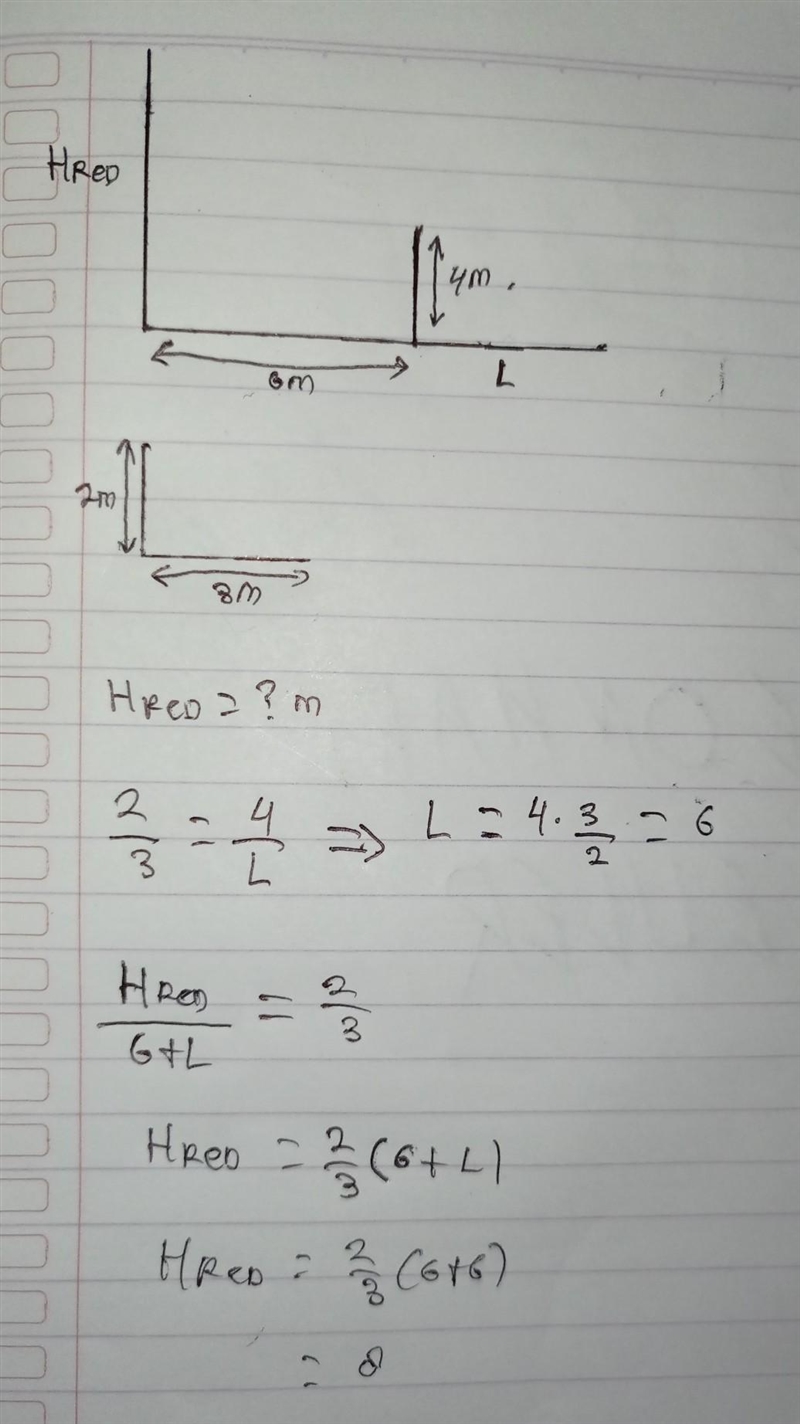 HRED
4m.
6m
L
2m
3m
HRED = ? m
2/3 = 4/L ⇒ L = 4·3/2 = 6
HRED/6+L = 2/3
HRED = 2/3 (6+L)
HRED = 2/3 (6+6)
= 8